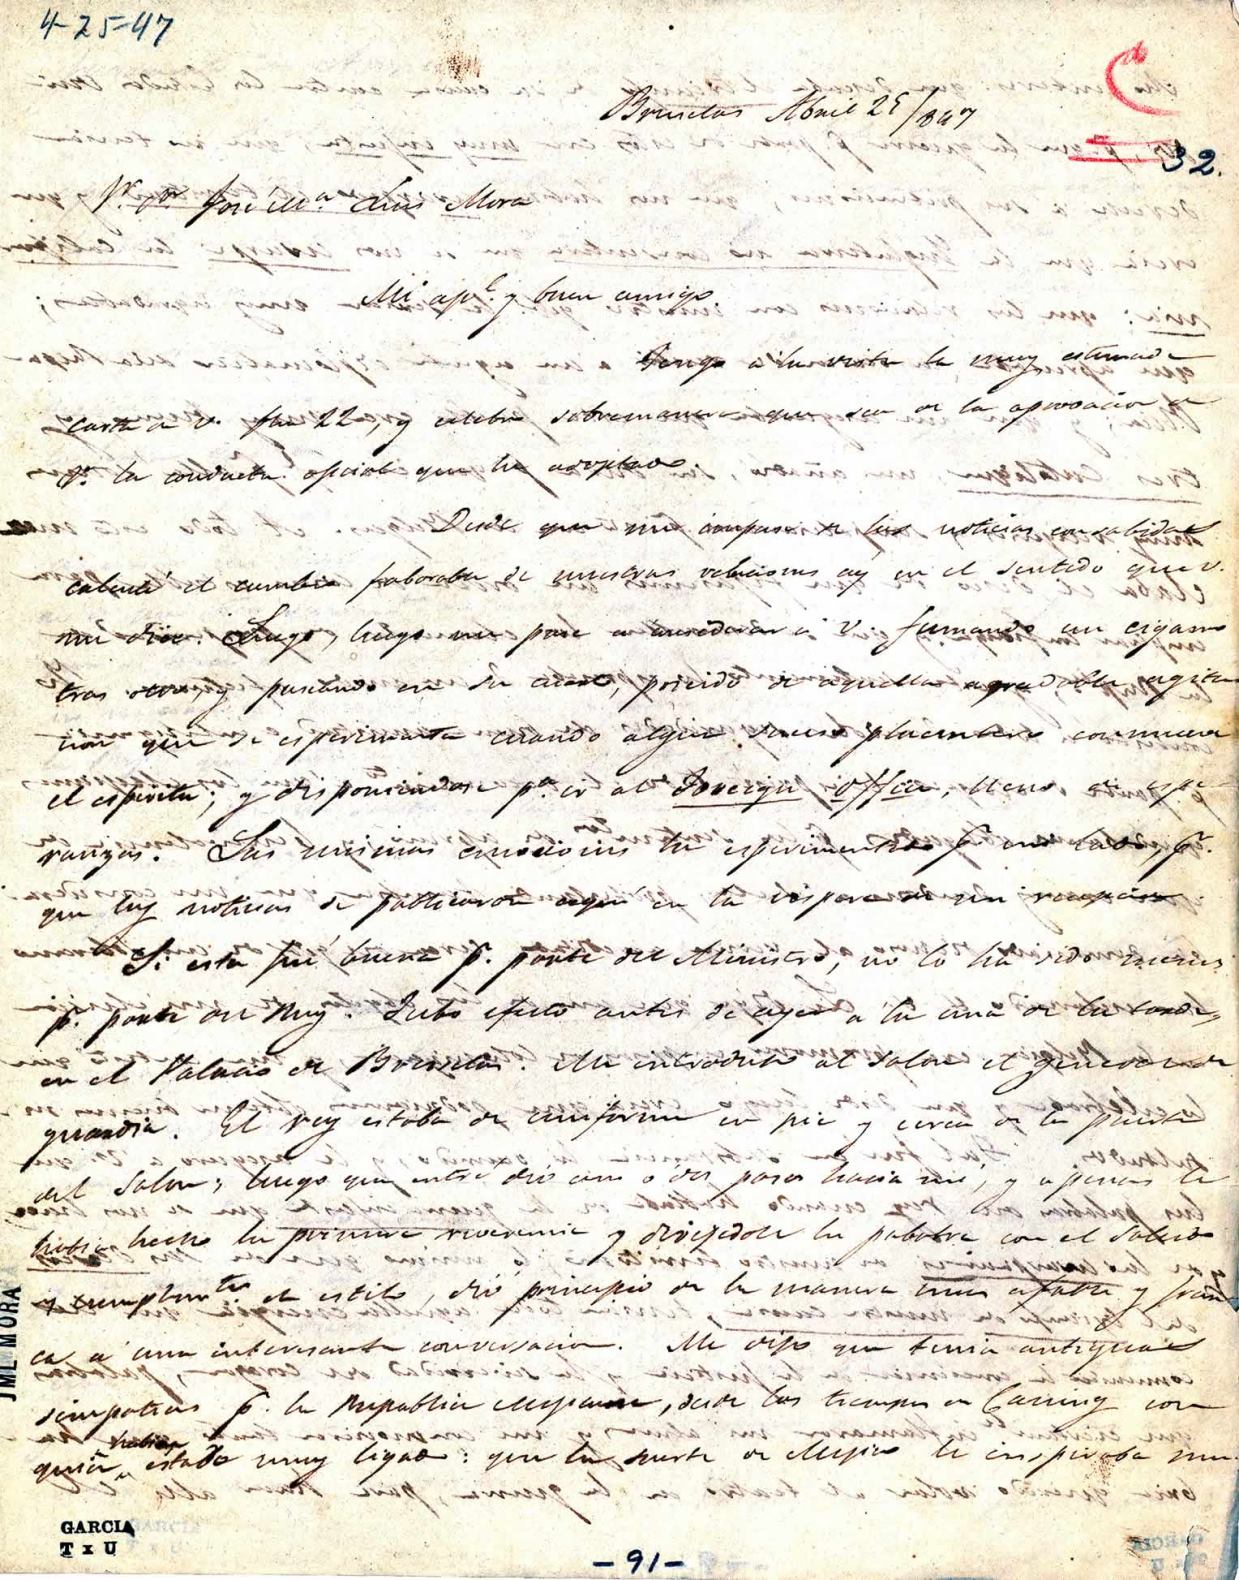 4-25=47
C
Bruselas Abril 25/847
32.
Sr. Dr. José Ma. Luis Mora
Mi apre. y buen amigo
Tengo a la vista la muy estimada
carta de V. fha 22, y celebro sobremanera que sea de la aprobación de
V. la conducta oficial que he adoptado.
Desde que me impuse de las noticias consabidas
calculé el cambio favorable de nuestras relaciones ay en el sentido que V.
me dice. Luego, luego me puse a considerar á V. fumando un cigarro
tras otro, y paseando en su casa, poseido de aquella agradable agita
cion que se esperimenta cuando algun suceso placentero conmueve
el espiritu; y disponiendose pa. ir al Foreign Office, lleno de espe
ranzas. Las mismas emociones he esperimentado pr. mi lado, pr.
que las noticias se publicaron aqui en la vispera de mi recepcion
Si esta fué buena pr. parte del Ministro, no lo ha sido menos
pr. parte del Rey. Tubo efecto antes de ayer a la una de la tarde,
en el Palacio de Bruselas. Me introdujo al Salon el general de
guardia. El rey estaba de uniforme en pie y cerca de la puerta
del Salon; luego que entré dió uno ó dos pasos hacia mi, y apenas le
habia hecho la primera reverencia y dirijidole la palabra con el saludo
y cumplimtos. de estilo, dió principio de la manera mas afable y fran
ca á una interesante conversacion. Me dijo que tenia antiguas
simpatias pr. la Republica Mejicana, desde los tiempos de Canning con
quien habia estado muy ligado: que la suerte de Mejico le inspiraba mu
JML MORA
GARCIA
T x U
-91-